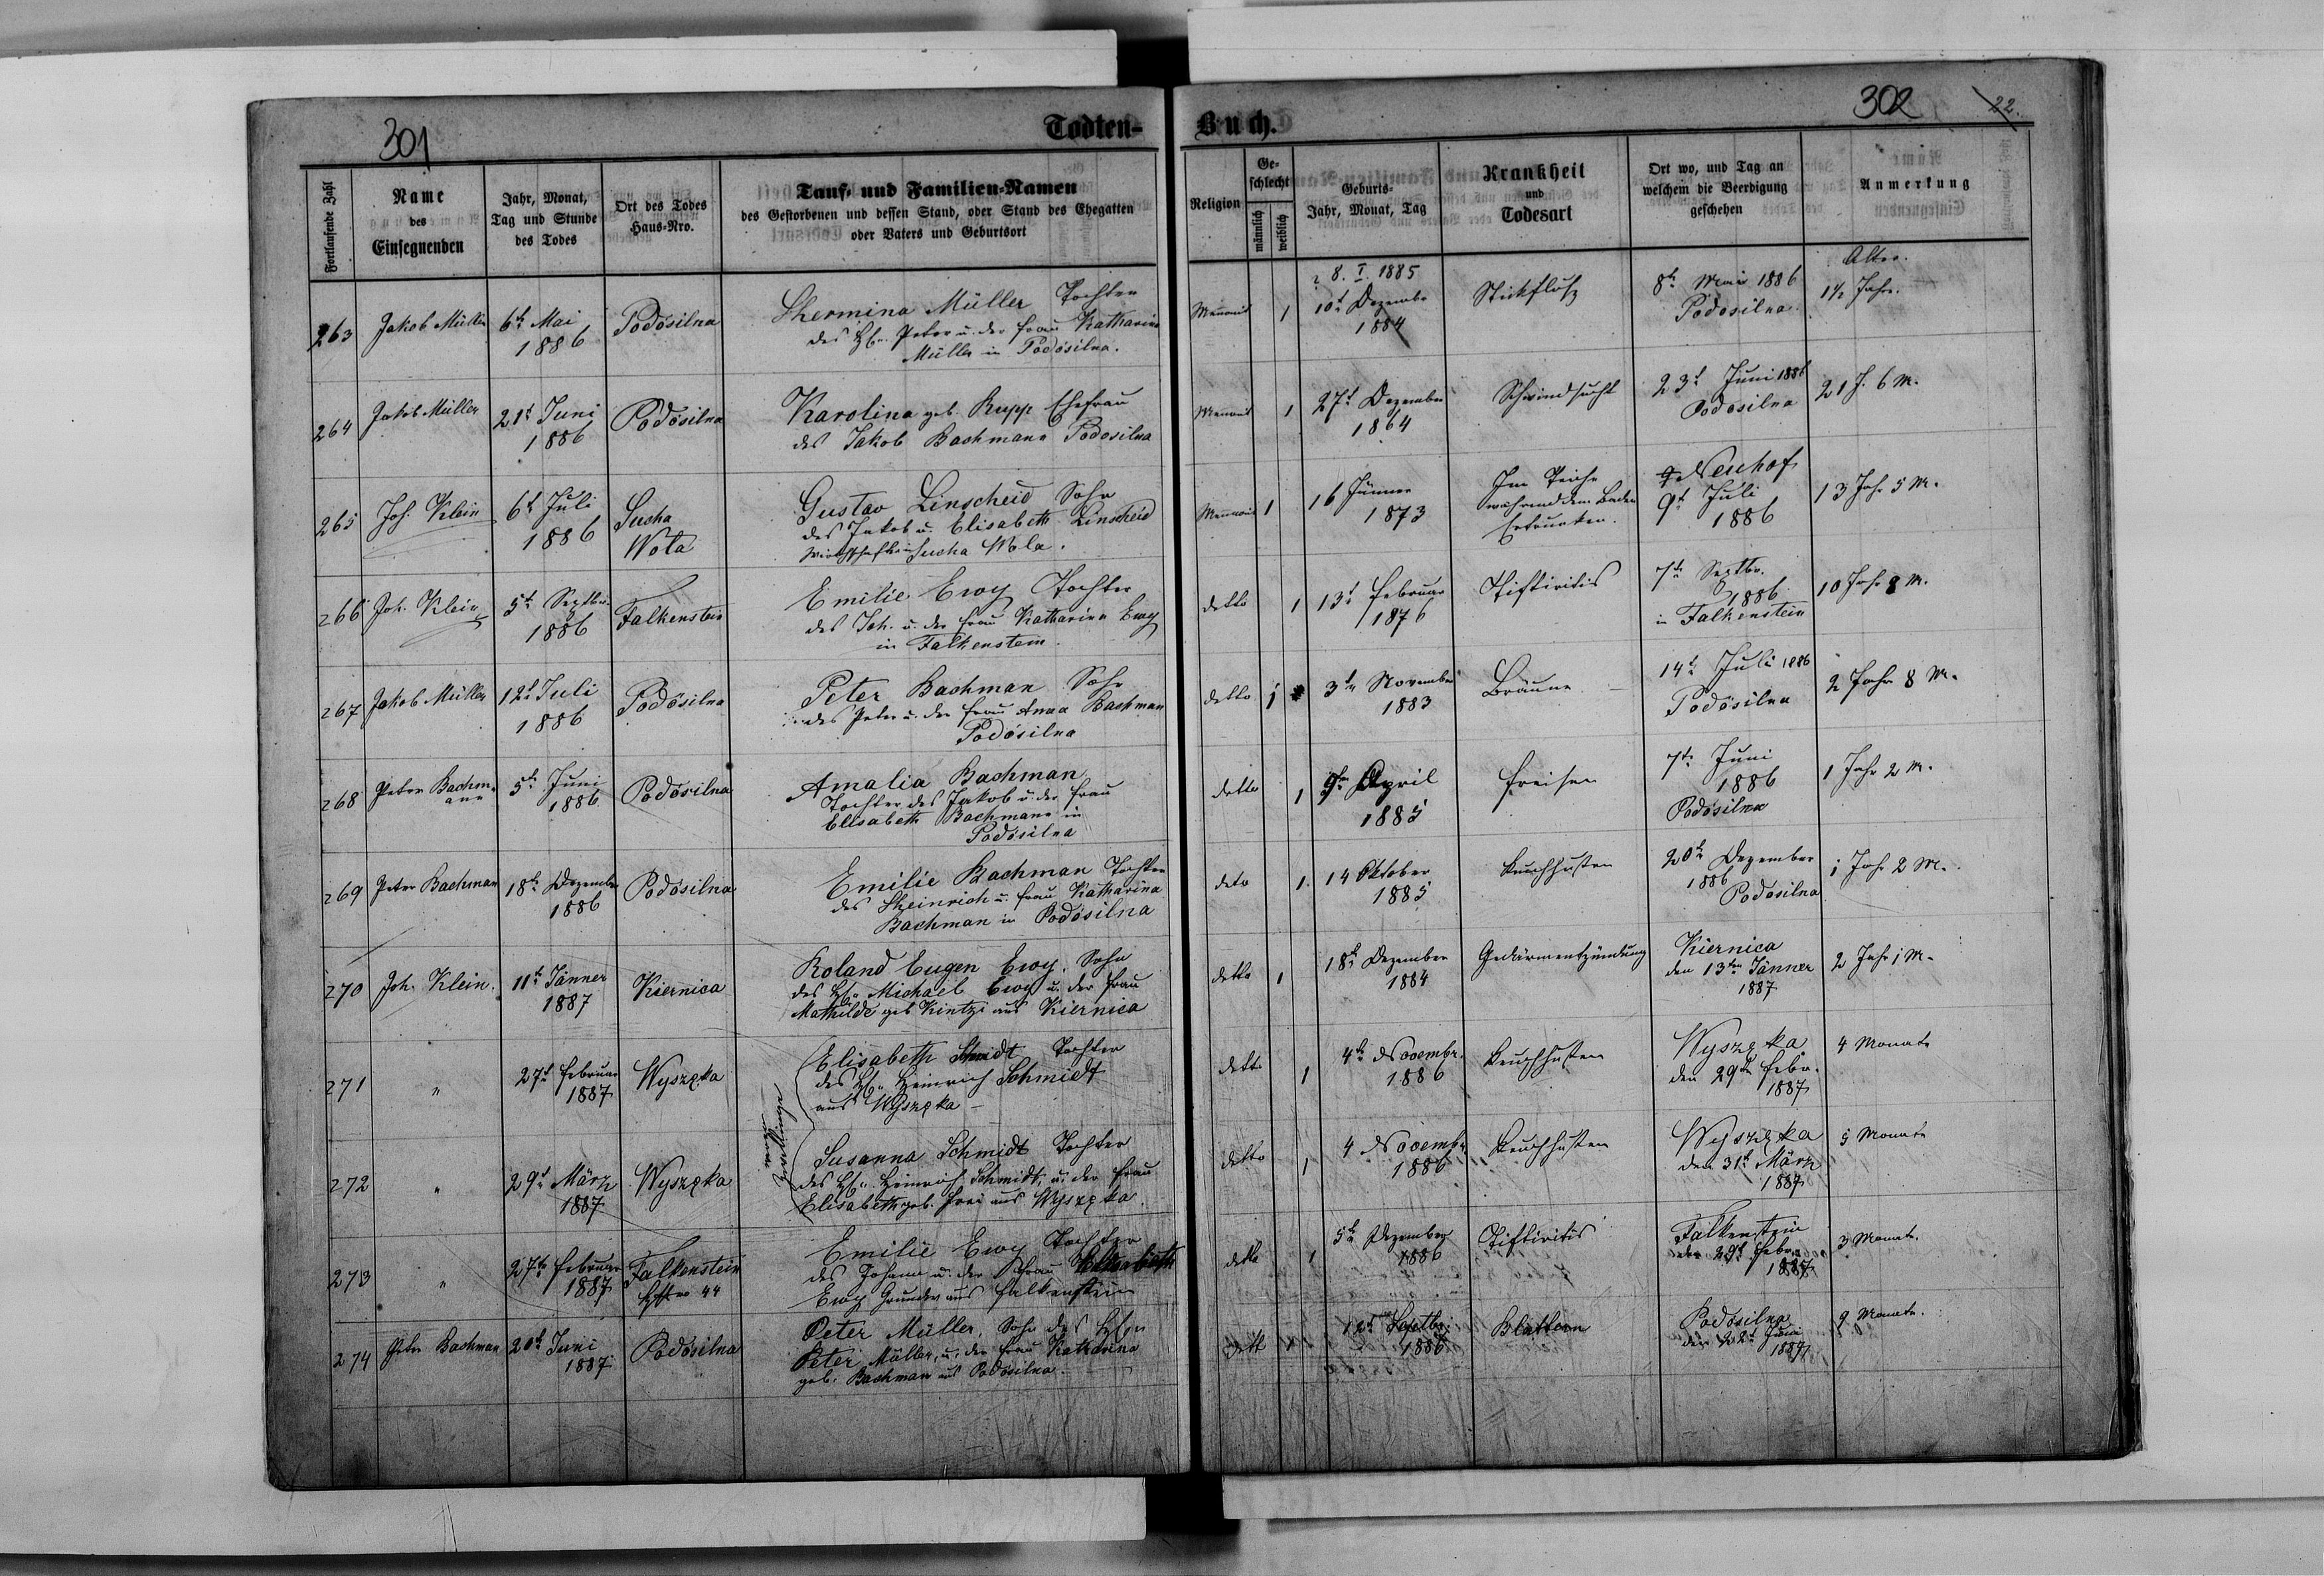 301
Todten-
Fortlaufende Zahl
Name
des
Einsegnenden
Jahr, Monat,
Tag und Stunde
des Todes
Ort des Todes
Haus-Nro.
Tauf- und Familien-Namen
des Gestorbenen und dessen Stand, oder Stand des Ehegatten
oder Vaters und Geburtsort
263 Jakob Müller
6t Mai
1886
Podosilna
Hermina Müller Tochter
des Peter u. der Frau Katharina
Müller in Podosilna.
264 Jakob Müller
21t Juni
1886
Podosilna
Karolina geb. Rupp Ehefrau
des Jakob Bachmann Podosilna
265 Joh. Klein
6t Juli
1886
Sucha
Wola
Gustav Linscheid Sohn
des Jakob u. Elisabeth Linscheid
Sucha Wola.
266 Joh. Klein
5t Septbr.
1886
Falkenstein
Emilie Ewy Tochter
des Joh. u. der Frau Katharina Ewy
in Falkenstein.
267 Jakob Müller
12t Juli
1886
Podosilna
Peter Bachman Sohn
des Peter u. der Frau Anna Bachman
Podosilna
268 Peter Bachm-
ann
5t Juni
1886
Podosilna
Amalia Bachman
Tochter des Jakob u. der Frau
Elisabeth Bachmann in
Podosilna
269 Peter Bachman
18t Dezember
1886
Podosilna
Emilie Bachman Tochter
des Heinrich u. Frau Katharina
Bachman in Podosilna
270 Joh. Klein.
11t Jänner
1887
Kiernica
Roland Eugen Ewy. Sohn
des Michael Ewy u. der Frau
Mathilde geb Kintzi aus Kiernica
271 "
27t Februar
1887
Wyszęka
Zwillinge
Elisabeth Schmidt Tochter
des Heinrich Schmidt
aus Wyszęka
272 "
29t März
1887
Wyszęka
Susanna Schmidt Tochter
des Heinrich Schmidt, u. der Frau
Elisabeth geb. Frei aus Wyszęka.
273 "
27t Februar
1887
Falkenstein
44
Emilie Ewy Tochter
des Johann u. der Frau Elisabeth
Ewy aus Falkenstein
274 Peter Bachman
20t Juni
1887
Podosilna
Peter Müller, Sohn des
Peter Müller, u. der Frau Katharina
geb. Bachman aus Podosilna.
302
22.
Buch.
Religion
Ge-
schlecht
männlich
weiblich
Geburts-
Jahr, Monat, Tag
Krankheit
und
Todesart
Ort wo, und Tag an
welchem die Beerdigung
geschehen
Anmerkung
Alter.
Menonit 1
8. I. 1885
10t Dezembe
1884
Stickfluß
8t Mai 1886
Podosilna.
1½ Jahr.
Menonit 1
27t Dezember
1864
Schwindsucht
23t Juni 1886
Podosilna
21 J. 6 M.
Menonit 1
16 Jänner
1873
Im Teiche
während dem Baden
Ertrunken.
Neuhof
9t Juli
1886
13 Jahr 5 M.
detto 1
13t Februar
1876
Diftiritis
7t Septbr.
1886
in Falkenstein
10 Jahr 8 M.
detto 1
3t November
1883
Bräune
14t Juli 1886
Podosilna
2 Jahr 8 M.
detto 1
9t April
1885
Freisen
7t Juni
1886
Podosilna
1 Jahr 2 M.
deto 1.
14 Oktober
1885
Keuchhusten
20t Dezember
1886
Podosilna
1 Jahr 2 M.
detto 1
18t Dezember
1884
Gedärmentzündung
Kiernica
den 13ten Jänner
1887
2 Jahr 1 M.
detto 1
4t Novembr.
1886
Keuchhusten
Wyszęka
den 29t Febr.
1887
4 Monate
detto 1
4 Novembr.
1886
Keuchhusten
Wyszęka
den 31t März
1887
5 Monate
detto 1
5t Dezember
1886
Diftiritis
Falkenstein
den 29t Febr.
1887
3 Monate.
dett 1
12t Septbr.
1886
Blattern
Podosilna
den 22t Juni
1887
9 Monate.